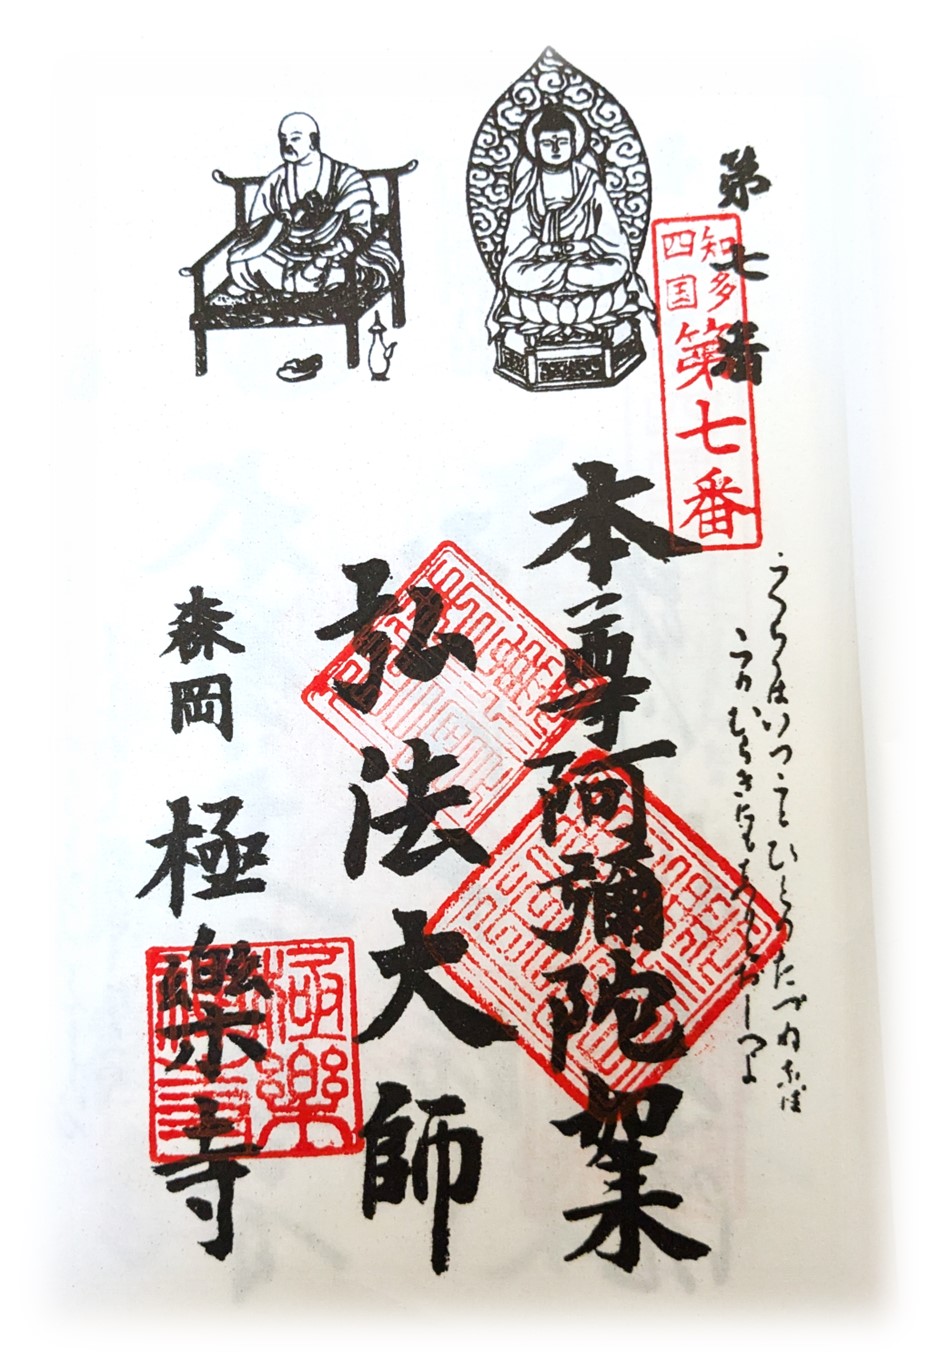 第七番
知多
四国
第七番
ごくらくはいつことひとのたづねなば
本尊阿彌陀如来
弘法大師
森岡
極樂寺
極樂